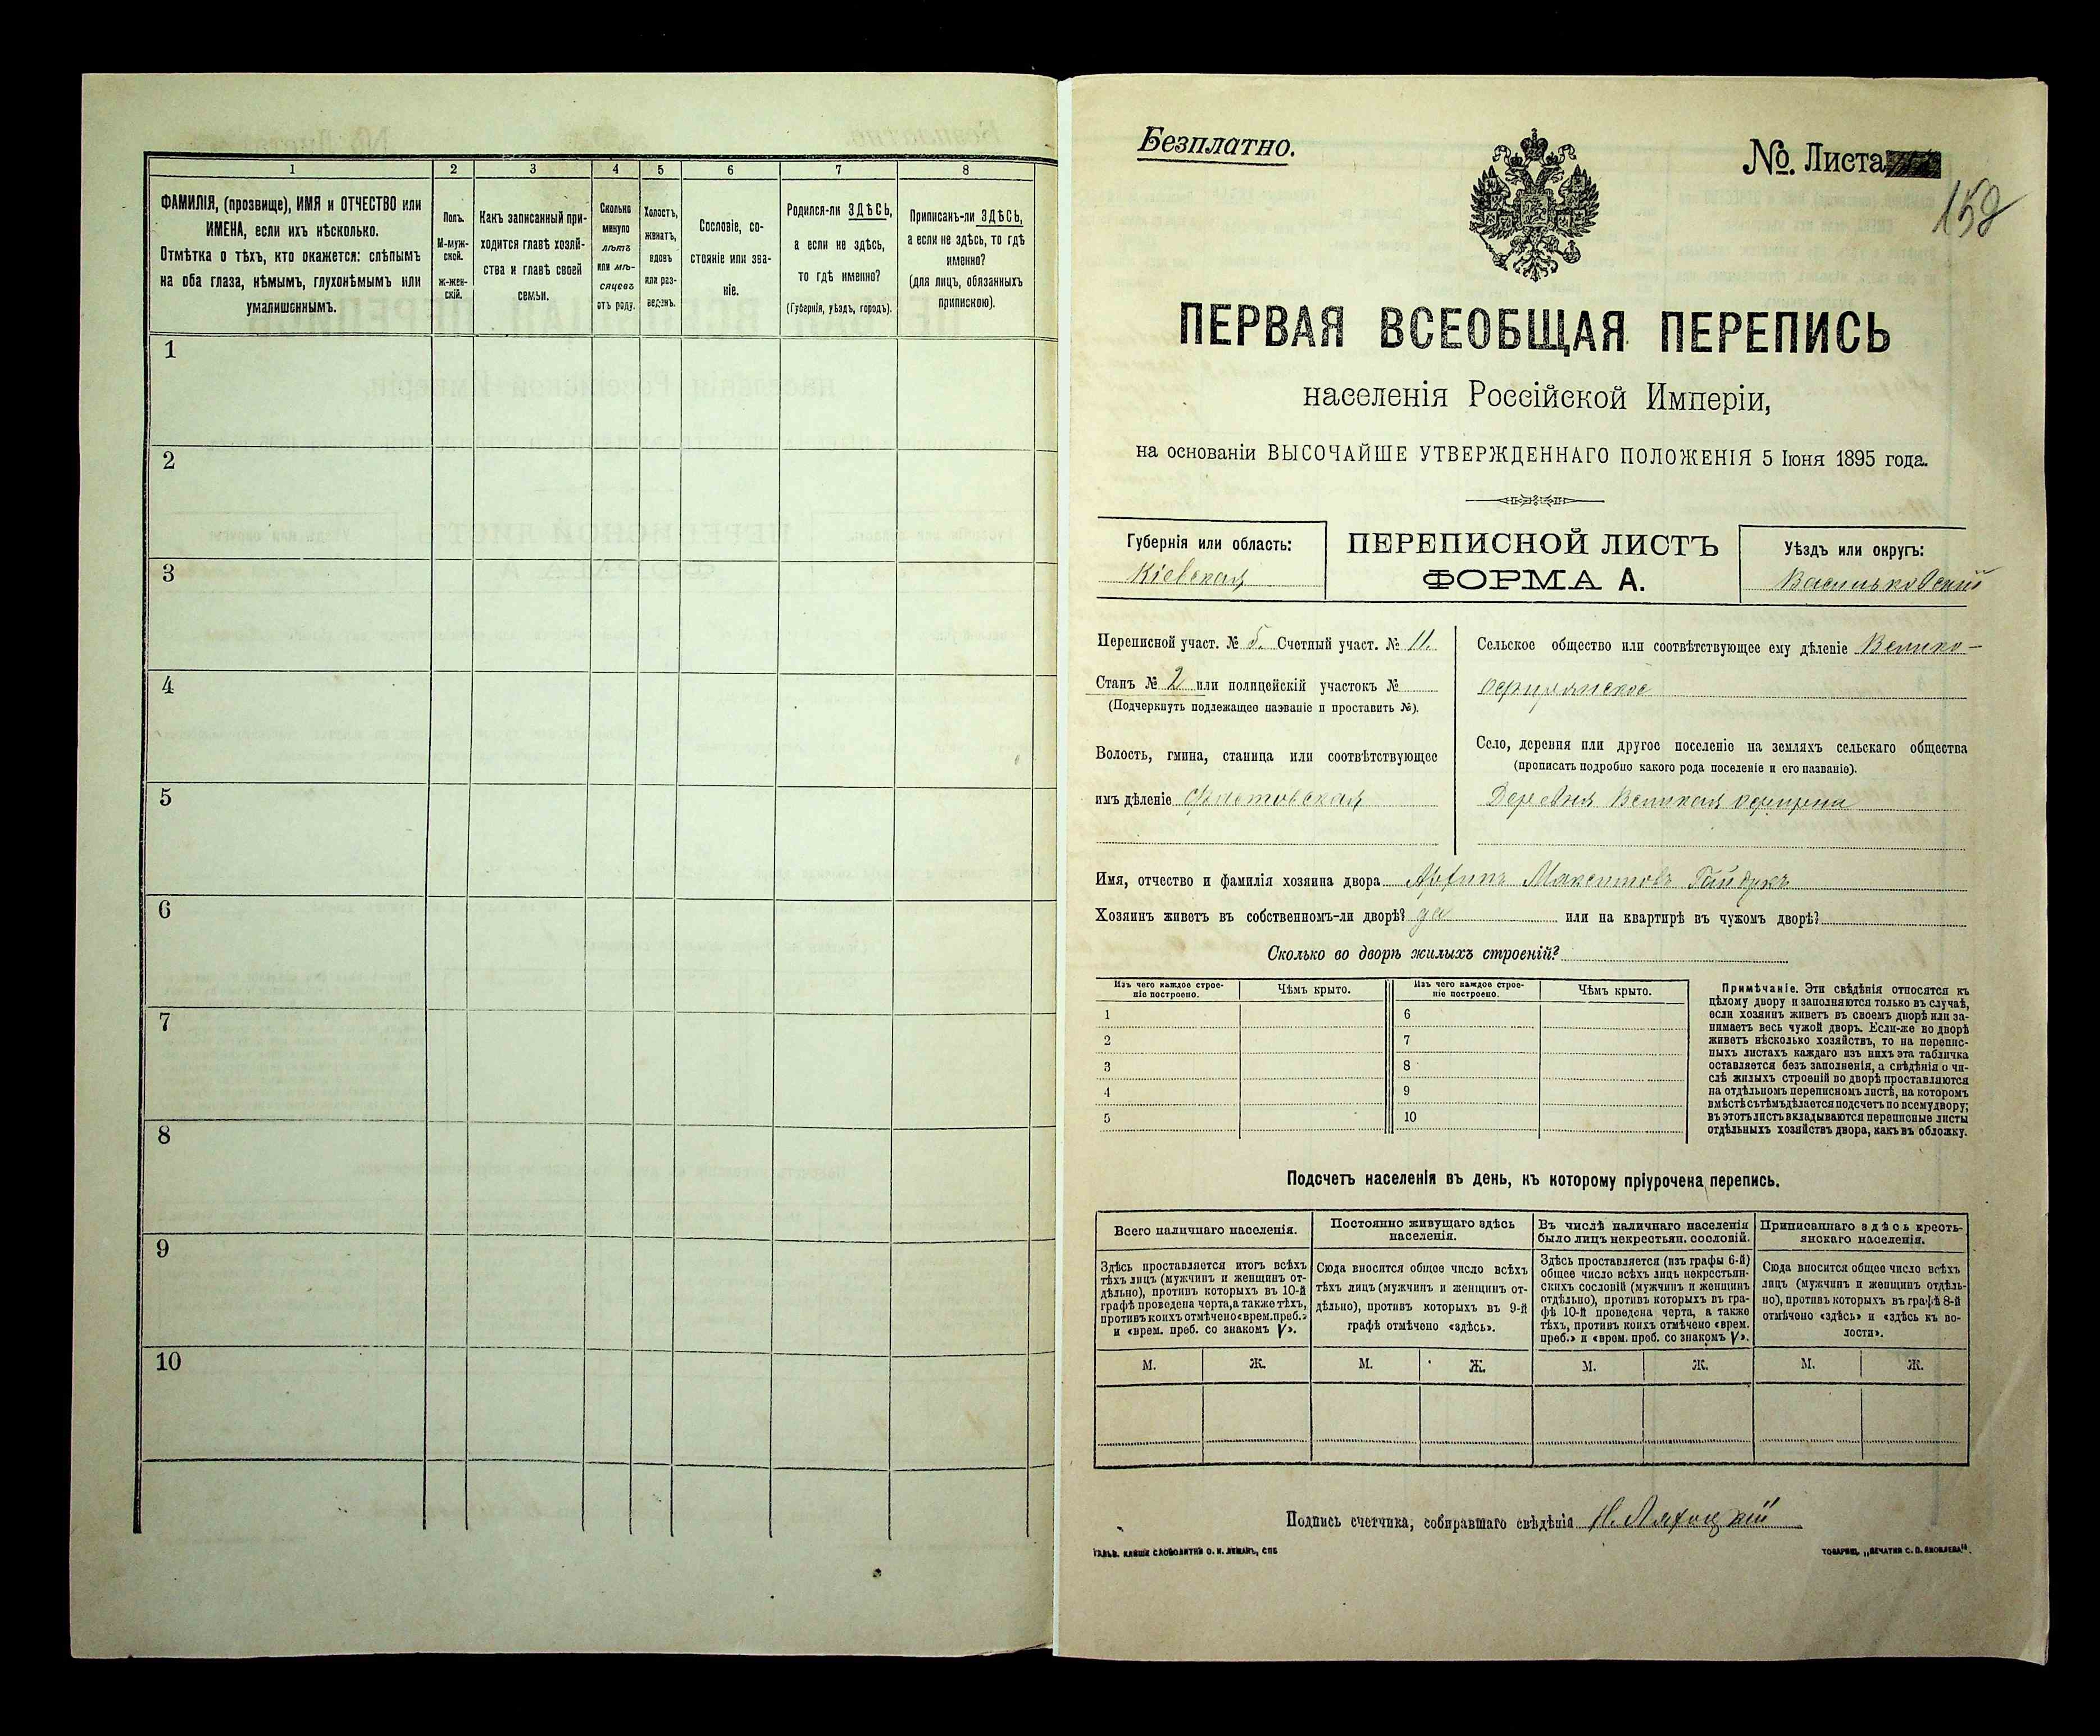 1 2 3 4 5 6 7 8
ФАМИЛІЯ, (прозвище), ИМЯ и ОТЧЕСТВО или
ИМЕНА, если ихъ нѣсколько.
Отмѣтка о тѣхъ, кто окажется: слѣпымъ
на оба глаза, нѣмымъ, глухонѣмымъ или
умалишеннымъ.
Полъ.
М-муж-
ской.
ж-жен-
скій.
Какъ записанный при-
ходится главѣ хозяй-
ства и главѣ своей
семьи.
Сколько
минуло
лѣтъ
или мѣ-
сяцевъ
отъ роду.
Холостъ,
женатъ,
вдовъ
или раз-
веденъ.
Сословіе, со-
стояніе или зва-
ніе.
Родился-ли ЗДѢСЬ,
а если не здѣсь,
то гдѣ именно?
(Губернія, уѣздъ, городъ).
Приписанъ-ли ЗДѢСЬ,
а если не здѣсь, то гдѣ
именно?
(для лицъ, обязанныхъ
припискою).
1
2
3
4
5
6
7
8
9
10
Безплатно.
№ Листа
ПЕРВАЯ ВСЕОБЩАЯ ПЕРЕПИСЬ
населенія Россійской Имперіи,
на основаніи ВЫСОЧАЙШЕ УТВЕРЖДЕННАГО ПОЛОЖЕНІЯ 5 Іюня 1895 года.
Губернія или область:
Кіевская
ПЕРЕПИСНОЙ ЛИСТЪ
ФОРМА А.
Уѣздъ или округъ:
Васильковскій
Переписной участ. № 5. Счетный участ. № 11.
Станъ № 2 или полицейскій участокъ №
(Подчеркнуть подлежащее названіе и проставить №).
Волость, гмина, станица или соотвѣтствующее
имъ дѣленіе Фастовская
Сельское общество или соотвѣтствующее ему дѣленіе Велико-
Село, деревня или другое поселеніе на земляхъ сельскаго общества
(прописать подробно какого рода поселеніе и его названіе).
Деревня Великая
Имя, отчество и фамилія хозяина двора Максимовъ Гайдукъ
Хозяинъ живетъ въ собственномъ-ли дворѣ? да или на квартирѣ въ чужомъ дворѣ?
Сколько во дворѣ жилыхъ строеній?
Изъ чего каждое строе-
ніе построено.
Чѣмъ крыто.
Изъ чего каждое строе-
ніе построено.
Чѣмъ крыто.
1 6
2 7
3 8
4 9
5 10
Примѣчаніе. Эти свѣдѣнія относятся къ
цѣлому двору и заполняются только въ случаѣ,
если хозяинъ живетъ въ своемъ дворѣ или за-
нимаетъ весь чужой дворъ. Если-же во дворѣ
живетъ нѣсколько хозяйствъ, то на перепис-
ныхъ листахъ каждаго изъ нихъ эта табличка
оставляется безъ заполненія, а свѣдѣнія о чи-
слѣ жилыхъ строеній во дворѣ проставляются
на отдѣльномъ переписномъ листѣ, на которомъ
вмѣстѣ съ тѣмъ дѣлается подсчетъ по всему двору;
въ этотъ листъ вкладываются переписные листы
отдѣльныхъ хозяйствъ двора, какъ въ обложку.
Подсчетъ населенія въ день, къ которому пріурочена перепись.
Всего наличнаго населенія.
Постоянно живущаго здѣсь
населенія.
Въ числѣ наличнаго населенія
было лицъ некрестьян. сословій.
Приписаннаго здѣсь кресть-
янскаго населенія.
Здѣсь проставляется итогъ всѣхъ
тѣхъ лицъ (мужчинъ и женщинъ от-
дѣльно), противъ которыхъ въ 10-й
графѣ проведена черта, а также тѣхъ,
противъ коихъ отмѣчено «врем. преб.»
и «врем. преб. со знакомъ V».
Сюда вносится общее число всѣхъ
тѣхъ лицъ (мужчинъ и женщинъ от-
дѣльно), противъ которыхъ въ 9-й
графѣ отмѣчено «здѣсь».
Здѣсь проставляется (изъ графы 6-й)
общее число всѣхъ лицъ некрестьян-
скихъ сословій (мужчинъ и женщинъ
отдѣльно), противъ которыхъ въ гра-
фѣ 10-й проведена черта, а также
тѣхъ, противъ коихъ отмѣчено «врем.
преб.» и «врем. преб. со знакомъ V».
Сюда вносится общее число всѣхъ
лицъ (мужчинъ и женщинъ отдѣль-
но), противъ которыхъ въ графѣ 8-й
отмѣчено «здѣсь» и «здѣсь къ во-
лости».
М. Ж. М. Ж. М. Ж. М. Ж.
Подпись счетчика, собиравшаго свѣдѣнія
ТОВАРИЩ. „ПЕЧАТНЯ С. П. ЯКОВЛЕВА".